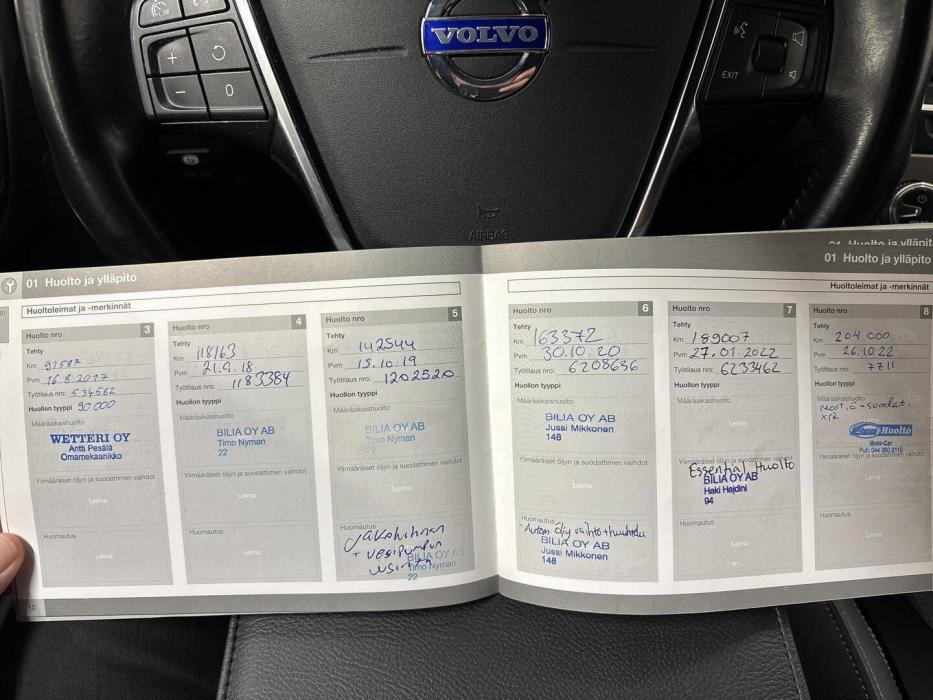 +
−
0
VOLVO
EXIT
AIRBAG
01 Huolto ja ylläpit
01 Huolto ja ylläpito
Huoltoleimat ja -merkinnät
Huolto nro 3
Tehty
Km 91587
Pvm 16.8.2017
Työtilaus nro: 534562
Huollon tyyppi 90 000
Määräaikaishuolto
WETTERI OY
Antti Pesälä
Omamekaanikko
Ylimääräiset öljyn ja suodattimen vaihdot
Leima
Huomautus
Leima
10
Huolto nro 4
Tehty
Km 118163
Pvm 21.9.18
Työtilaus nro: 1183384
Huollon tyyppi
Määräaikaishuolto
BILIA OY AB
Timo Nyman
22
Ylimääräiset öljyn ja suodattimen vaihdot
Leima
Huomautus
Leima
Huolto nro 5
Tehty
Km 142544
Pvm 15.10.19
Työtilaus nro: 1202520
Huollon tyyppi
Määräaikaishuolto
BILIA OY AB
Timo Nyman
22
Ylimääräiset öljyn ja suodattimen vaihdot
Leima
Huomautus
Jakohihnan
+ vesipumpun
BILIA OY
Timo Nyman
22
01 Huolto ja ylläpito
Huoltoleimat ja -merkinnät
Huolto nro 6
Tehty
Km 163372
Pvm 30.10.20
Työtilaus nro: 6208636
Huollon tyyppi
Määräaikaishuolto
BILIA OY AB
Jussi Mikkonen
148
Ylimääräiset öljyn ja suodattimen vaihdot
Leima
Huomautus
Autom. öljy vaihto + huuhtelu
BILIA OY AB
Jussi Mikkonen
148
Huolto nro 7
Tehty
Km 189007
Pvm 27.01.2022
Työtilaus nro: 6233462
Huollon tyyppi
Määräaikaishuolto
Leima
Ylimääräiset öljyn ja suodattimen vaihdot
Essential Huolto
BILIA OY AB
Haki Hajdini
94
Huomautus
Leima
Huolto nro 8
Tehty
Km 204 000
Pvm 26.10.22
Työtilaus nro: 7711
Huollon tyyppi
Määräaikaishuolto
Huolto
Moto-Car
Puh: 044 360 2110
Ylimääräiset öljyn ja suodattimen vaihdot
Leima
Huomautus
Leima